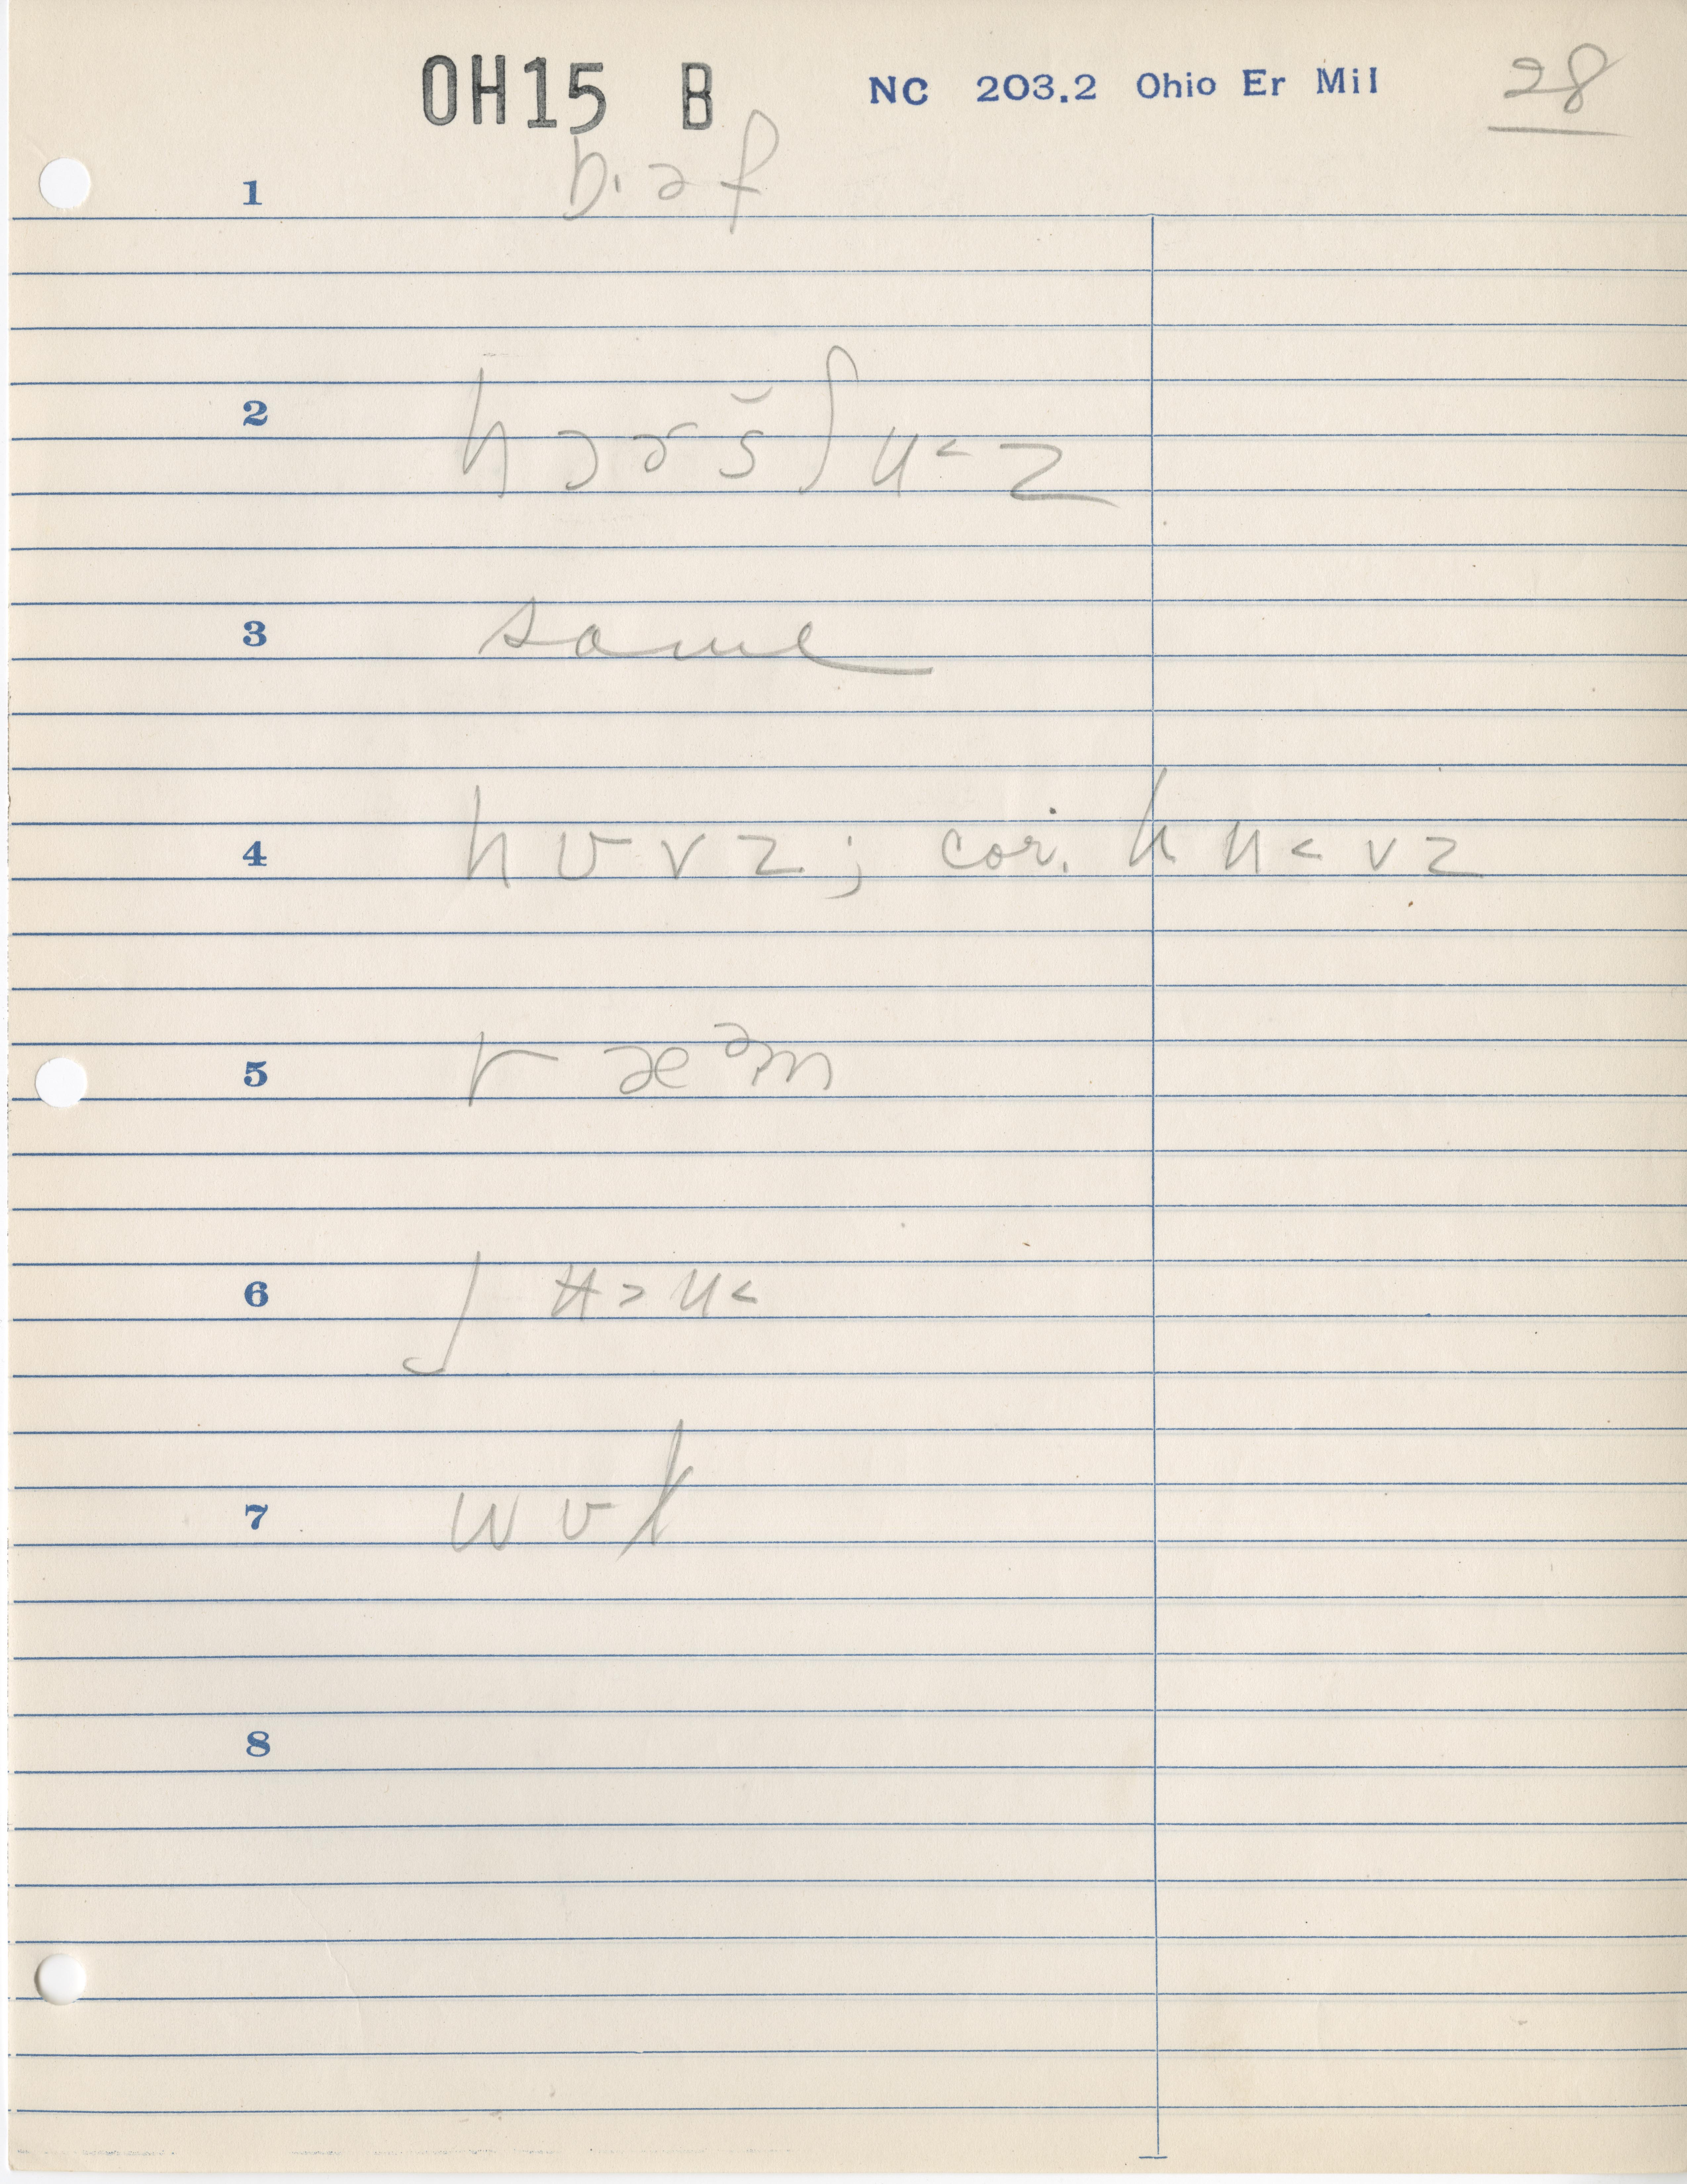 OH15 B NC 203.2 Ohio Er Mil 28
1 b.əf
2 hɔɚš ʃu˂z
3 same
4 hʊvz; cor. hu˂vz
5 ræᵊm
6 ʃʉ˃u˂
7 wʊk
8